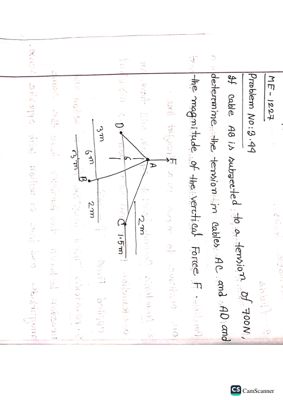 ME-1227
Problem No: 3.44
If cable AB is subjected to a tension of 700N,
determine the tension in cables AC and AD and
the magnitude of the vertical Force F.
F
A
2m
D
6
C
1.5m
3m
6m
B
2m
3m
CS CamScanner